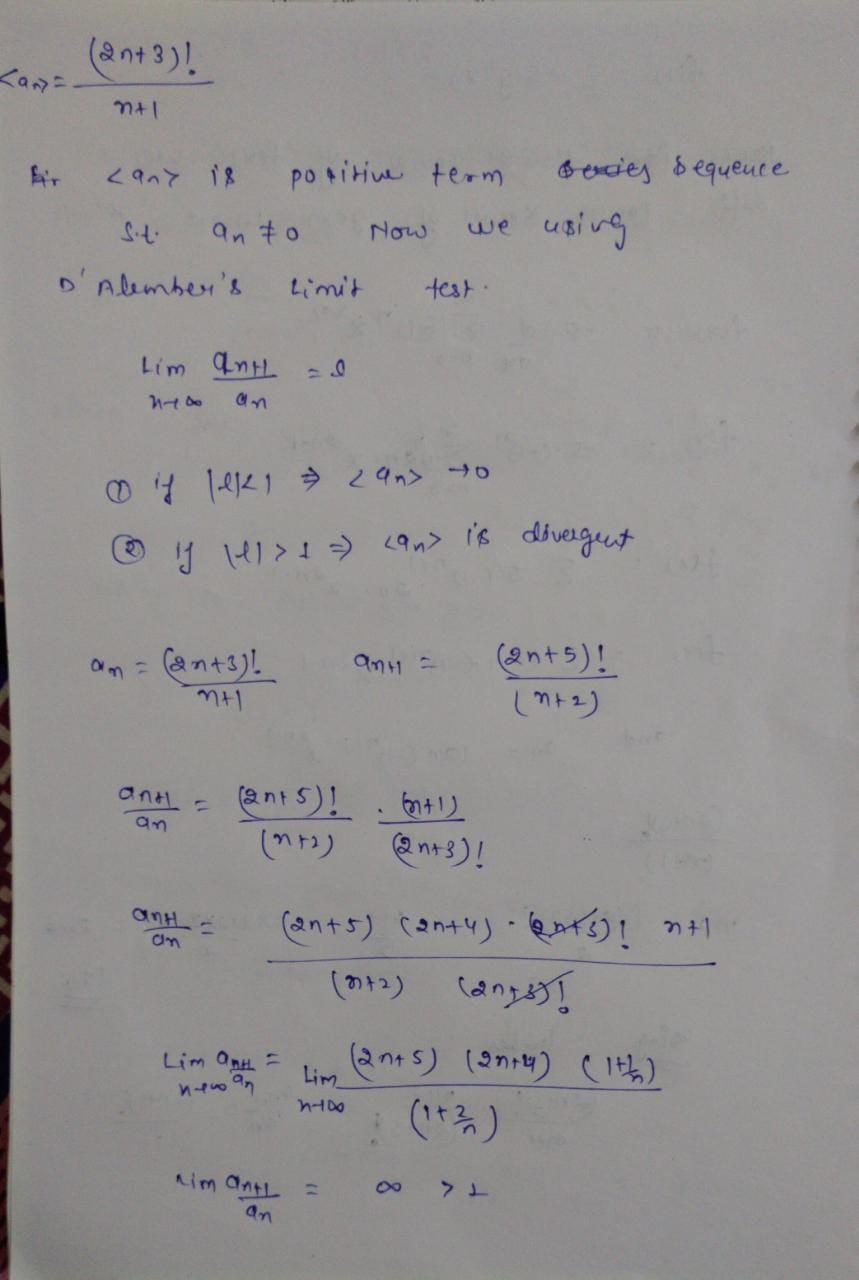 <an> = (2n+3)! / n+1
<an> is positive term sequence
s.t. an ≠ 0 Now we using
D'Alember's Limit test.
Lim n→∞ an+1 / an = l
① if |l|<1 ⇒ <an> →0
② if |l|>1 ⇒ <an> is divergent
an = (2n+3)! / n+1 an+1 = (2n+5)! / (n+2)
an+1 / an = (2n+5)! / (n+2) . (n+1) / (2n+3)!
an+1 / an = (2n+5) (2n+4) . (2n+3)! n+1 / (n+2) (2n+3)!
Lim n→∞ an+1 / an = Lim n→∞ (2n+5) (2n+4) (1+1/n) / (1+2/n)
Lim an+1 / an = ∞ > 1